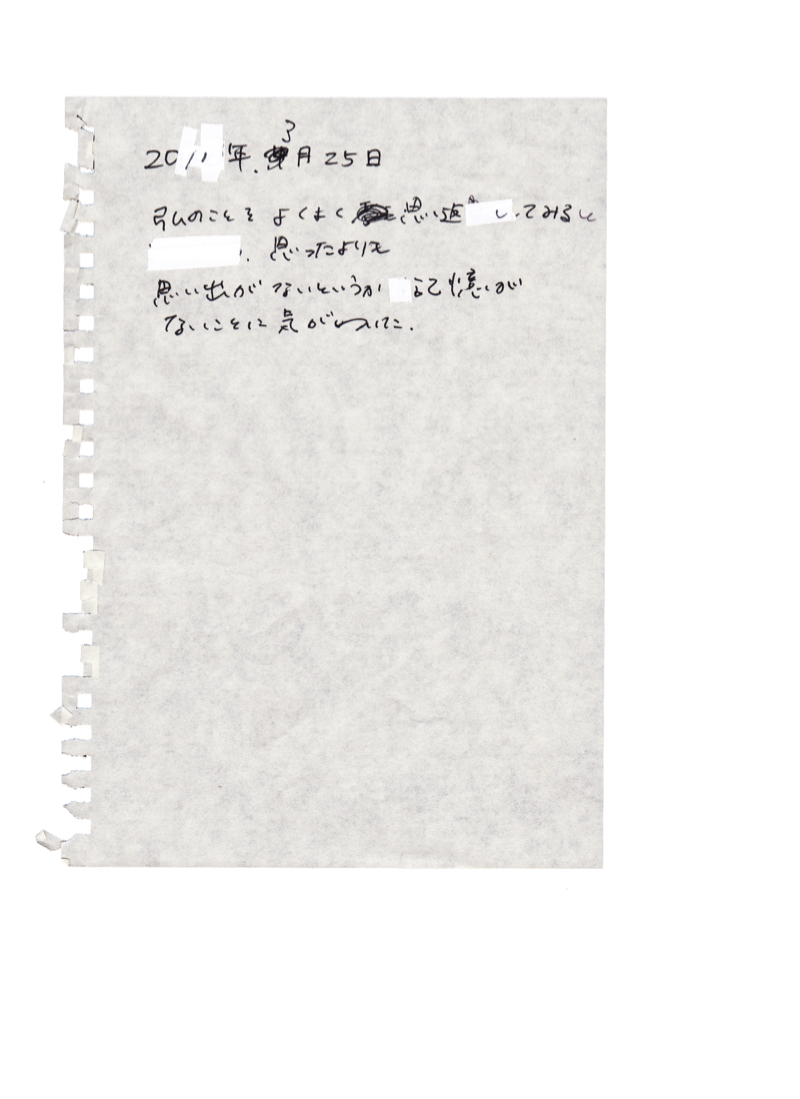 2011年.3月25日
弘のことをよくよく思い返してみると
. 思ったよりも
思い出がないというか記憶が
ないことに気がついた.